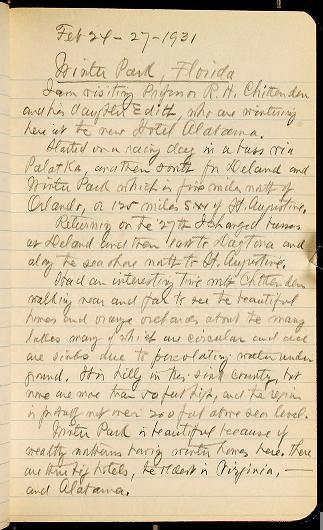 Feb 24 - 27 - 1931
Winter Park, Florida
I am visiting Professor R. H. Chittenden
and his daughter Edith, who are wintering
here at the new Hotel Alabama.
Started on a rainy day in a bus via
Palatka, and then south for Deland and
Winter Park which is five miles north of
Orlando, or 125 miles SW of St. Augustine.
Returning on the 27th I changed buses
at Deland and then east to Daytona and
along the sea shore north to St. Augustine.
Had an interesting time with Chittenden
walking near and far to see the beautiful
homes and orange orchards about the many
lakes many of which are circular and all
are sinks due to percolating water under
ground. It is hilly in this sink county, but
none are more than 50 feet high, and the region
is not over 200 feet above sea level.
Winter Park is beautiful because of
wealthy northerners having winter homes here, there
are three big hotels, the oldest is Virginia, —
and Alabama.